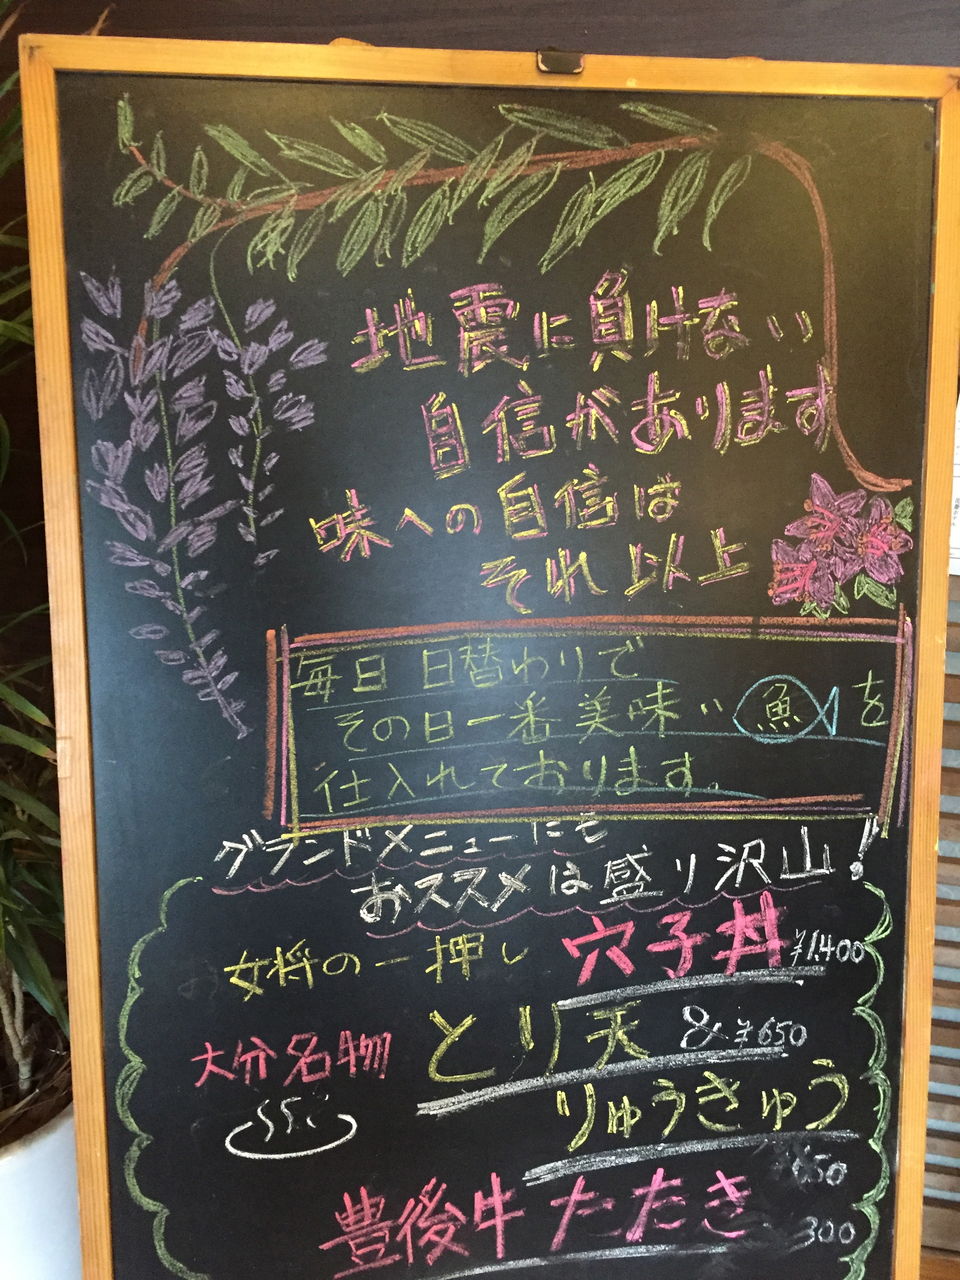 地震に負けない
自信があります
味への自信は
それ以上
毎日 日替わりで
その日一番美味い魚を
仕入れております。
グランドメニューにも
おススメは盛り沢山!
女将の一押し 穴子丼 ¥1,400
大分名物 とり天 & ¥650
りゅうきゅう
650
豊後牛たたき 300